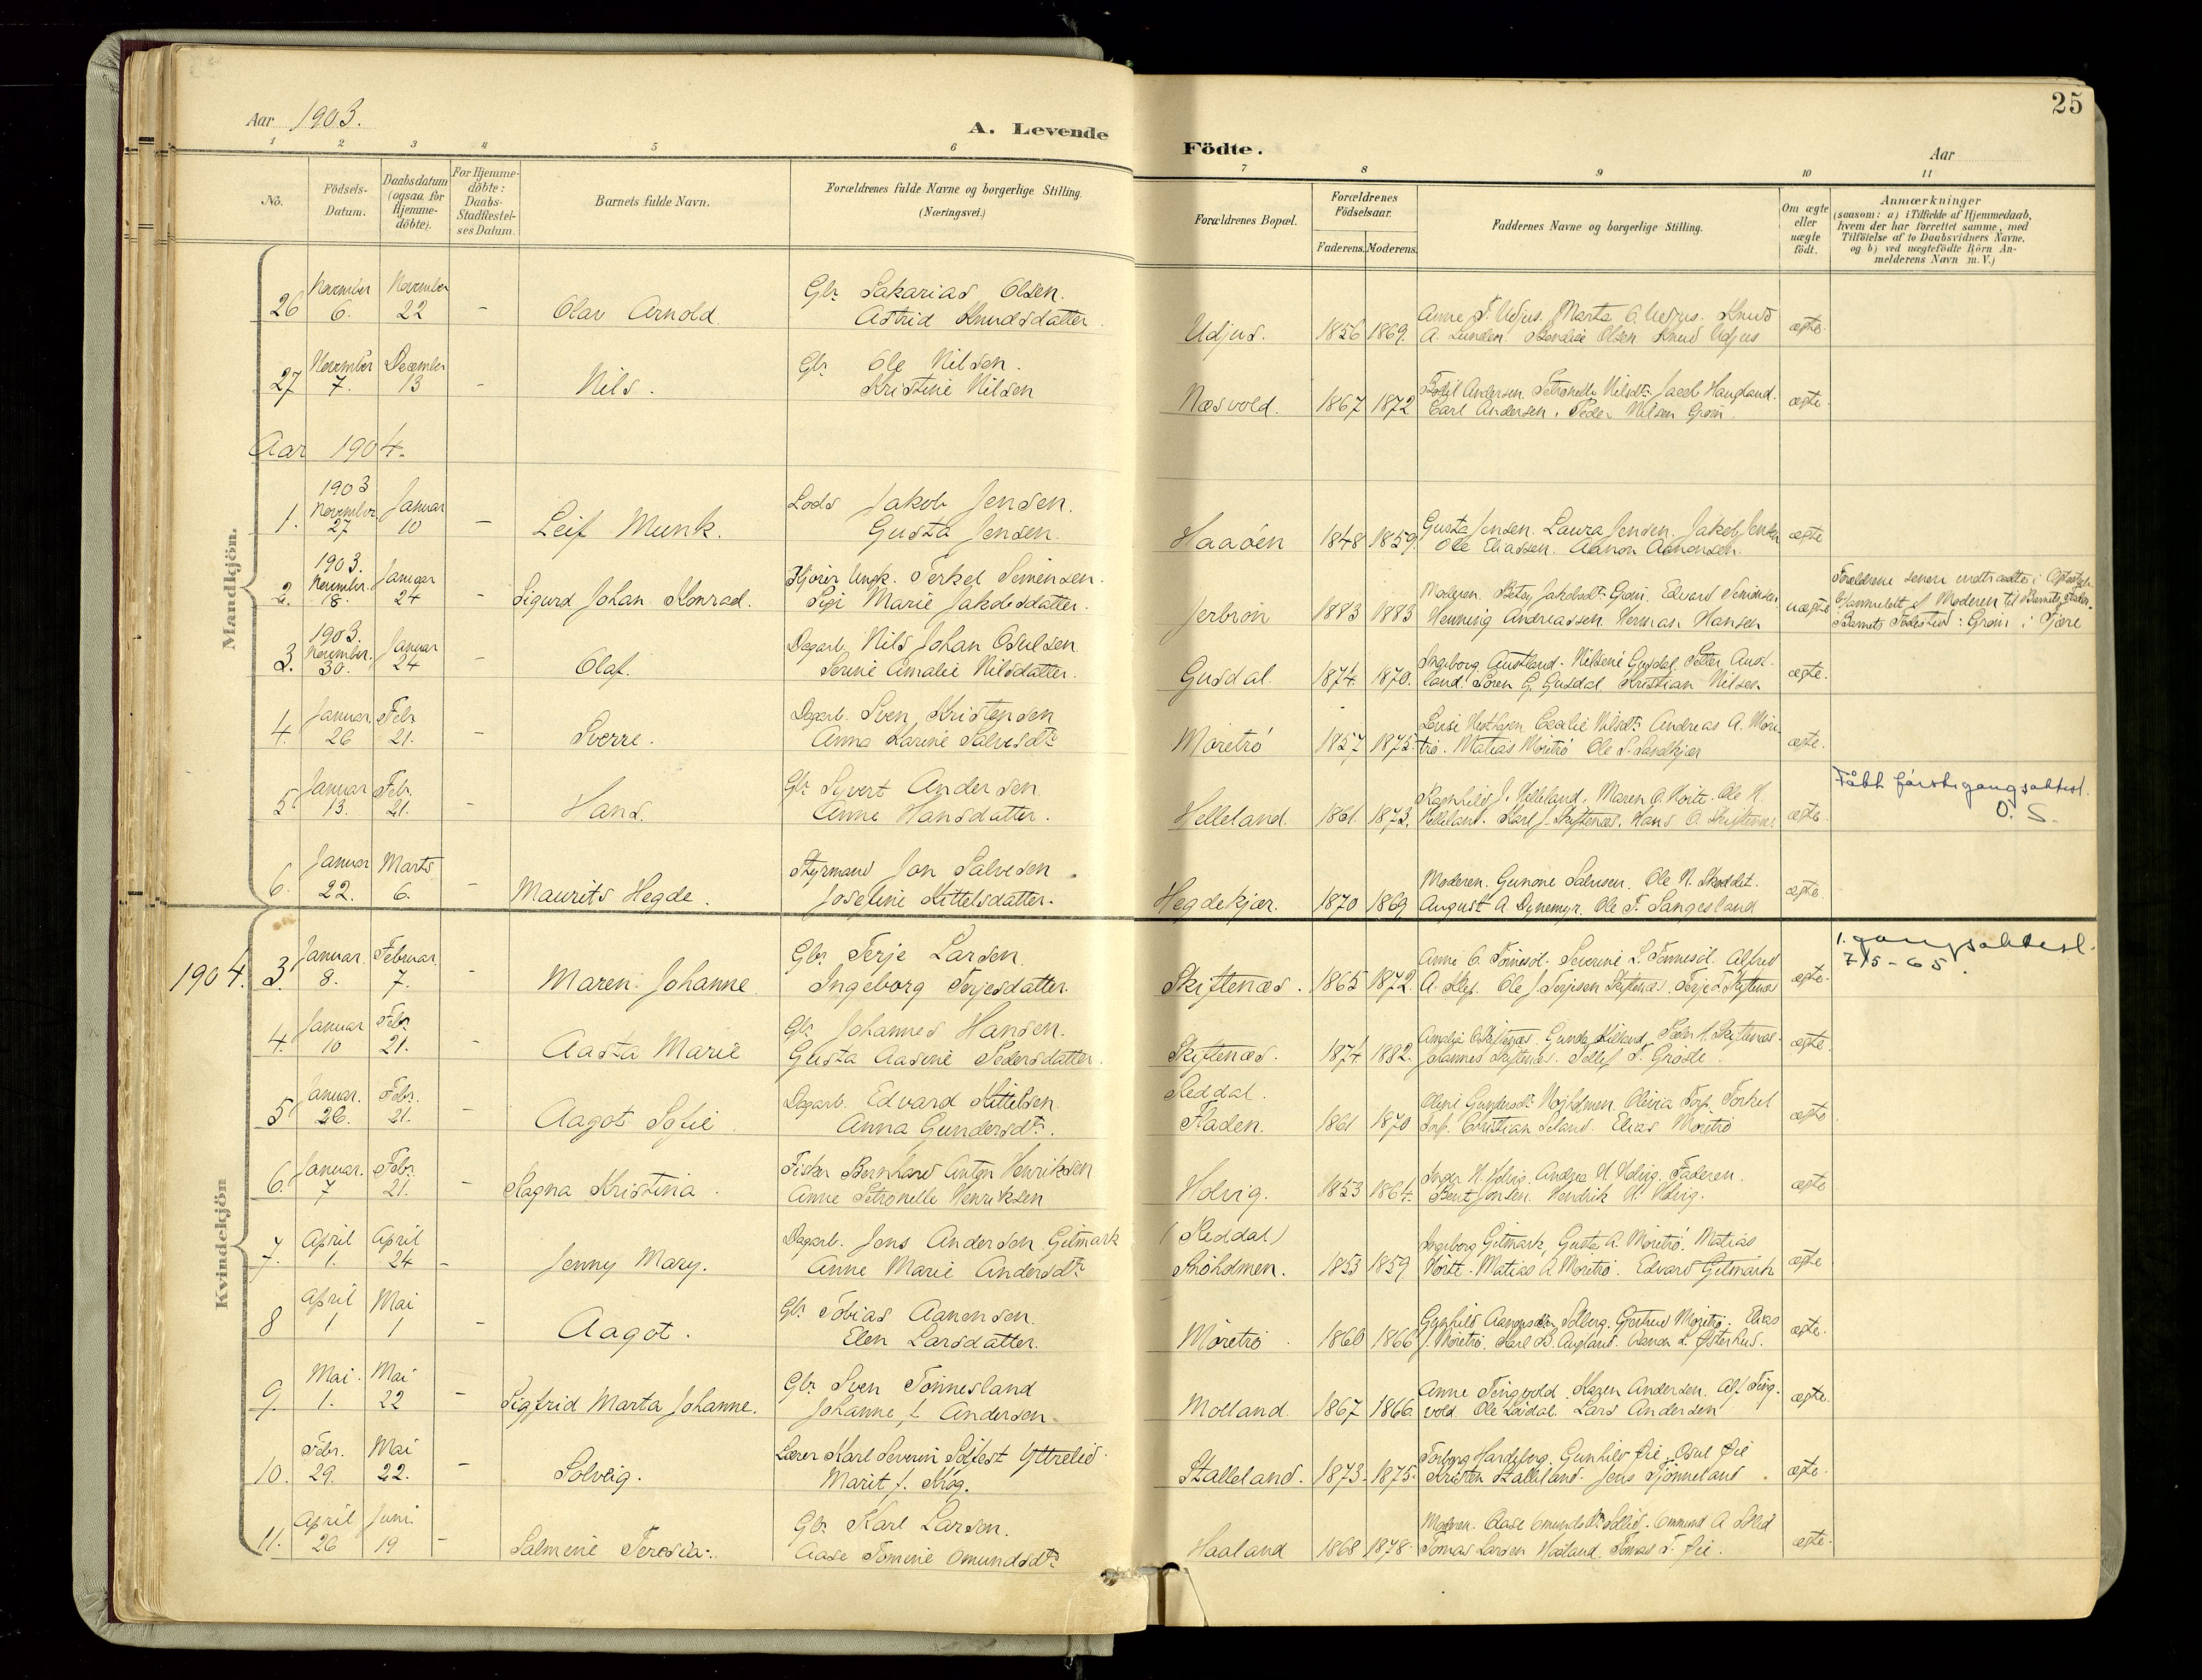 25
Aar 1903.
A. Levende
Födte.
Aar
1 2 3 4 5 6 7 8 9 10 11
No.
Födsels-Datum.
Daabsdatum (ogsaa for Hjemme-döbte).
For Hjemme-döbte: Daabs-Stadfæstel-ses Datum.
Barnets fulde Navn.
Forældrenes fulde Navne og borgerlige Stilling. (Næringsvei.)
Forældrenes Bopæl.
Forældrenes Födselsaar.
Faderens. Moderens.
Faddernes Navne og borgerlige Stilling.
Om ægte eller uægte födt.
Anmærkninger
(saasom: a) i Tilfælde af Hjemmedaab,
hvem der har forrettet samme, med
Tilföielse af to Daabsvidners Navne,
og b) ved uægtefödte Börn An-
melderens Navn m. V.)
Mandkjön.
26 November 6. November 22 - Olav Arnold. Gbr Sakarias Olsen.
Astrid Knudsdatter.
Udjus. 1856 1869. Anne T. Udjus. Marta O. Udjus. Knud
A. Lunden. Olsen. Knud Udjus ægte.
27 November 7. December 13 - Nils. Gbr Ole Nilsen.
Kristine Nilsen
Næsvold. 1867 1872 Bodil Andersen. Petronelle Nilsdtr. Jacob Haugland.
Carl Andersen. Peder Nilsen Groni. ægte.
Aar 1904.
1. 1903 November 27 Januar 10 - Leif Munk. Lods Jakob Jensen.
Gusta Jensen.
Haaöen 1848 1859. Gusta Jensen. Laura Jensen. Jakob Jensen
Ole Eliassen. Aanon Aanonsen. ægte
2. 1903. November. 18. Januar 24 - Sigurd Johan Konrad. Ungk. Terkel Simensen.
Marie Jakobsdatter.
Jerbron 1883 1883 Moderen. Betsy Jakobsdtr Groni. Edvard Simensen
Henning Andreassen. Herman Hansen uægte
Forældrene senere indtraadte i
af Moderen til
Barnets Födested: Groni i Fjære
3. 1903. November. 30. Januar 24 - Olaf. Dagarb. Nils Johan Osulsen
Serine Amalie Nilsdatter.
Gusdal. 1874. 1870. Ingeborg Austland. Nilsine Gusdal. Petter Aust-
land. Sören G. Gusdal. Kristian Nilsen ægte.
4. Januar 26 Febr 21. - Sverre. Dagarb. Sven Kristensen
Anna Karine Salvesdtr
Moretrö 1857 1875. Cecilie Nilsdtr Andreas A. More-
trö. Matias Moretrö Ole S. Sandkjær ægte.
5 Januar 13. Febr. 21. - Hans. Gbr Syvert Andersen.
Anne Hansdatter.
Helleland. 1861. 1873. Ragnhild J. Helleland. Maren O. Hörte. Ole H.
Helleland. Karl J. Skiftenæs. Hans O. Skiftenæs ægte.
Fått förstegangsattest.
O. S.
6. Januar 22. Marts 6. - Maurits Hegde. Styrmand Jon Salvesen
Josefine Kittelsdatter.
Hegdekjær. 1870 1869 Moderen. Gunone Salvesen. Ole N. Skoddet.
August A. Dynemyr. Ole T. Sangesland ægte.
Kvindekjön
1904. 3. Januar. 8. Februar. 7. - Maren Johanne Gbr Terje Larsen
Ingeborg Terjesdatter.
Skiftenæs. 1865 1872. Anne O. Tönnesöl. Severine L. Tönnesöl. Alfred
A. Klep. Ole J. Terjesen Skiftenæs. Terje T. Skiftenæs ægte.
1. gangsattest.
7/5-65.
4. Januar 10 Febr 21. - Aasta Marie Gbr Johannes Hansen.
Gusta Aasine Pedersdatter.
Skiftenæs. 1874 1882. Amalie O. Skiftenæs. Gunda Killand. Peder H. Skiftenæs.
Johannes Skiftenæs. Tellef T. Grosle. ægte.
5 Januar. 26. Febr. 21. - Aagot Sofie. Dagarb. Edvard Kittelsen.
Anna Gundersdtr.
Reddal.
Fladen. 1861 1870 Oline Gundersdtr Olivia Torp. Torkel
Torp. Christian Seland. Elias Moretrö ægte
6. Januar. 7 Febr. 21. - Ragna Kristina. Fisker Bernhard Anton Henriksen
Anne Petronelle Henriksen
Holvig. 1853 1864. Inger H. Holvig. Andrea H. Holvig. Faderen.
Bent Jonsen. Hendrik H. Holvig. ægte
7. April 1. April 24 - Jenny Mary. Dagarb. Jens Andersen Gitmark
Anne Marie Andersdtr
(Reddal)
Snöholmen. 1853 1859 Ingeborg Gitmark, Gusta A. Moretrö. Matias
Hörte. Matias A. Moretrö. Edvard Gitmark ægte
8 April 1 Mai 1 - Aagot. Gbr Tobias Aanensen.
Elen Larsdatter.
Moretrö 1860 1866 Gunhild Solberg. Gjertrud Moretrö. Elias
J. Moretrö. Karl B. Augland. Aanon L. Østerhus. ægte.
9. Mai 1. Mai 22 - Sigfrid Marta Johanne. Gbr Sven Tönnesland
Johanne f. Andersen
Molland. 1867 1866. Anne Tingvold. Karen Andersen. Alf Ting-
vold. Ole Lördal. Lars Andersen ægte.
10. Febr. 29. Mai 22. - Solveig. Lærer Karl Severin Solfest Ytrelid.
Marit f. Krog.
Stalleland. 1873. 1875. Torborg Hardeberg. Gunhild Øie. Osul Øie
Kristen Stalleland. Jens Tjönneland. ægte.
11. April 26 Juni 19 - Salmine Teresia. Gbr Karl Larsen.
Aase Tomine Omundsdtr
Haaland 1868 1878. Moderen. Aase Omundsdtr Omund A.
Tomas Larsen Haaland. Tomas T. Øie. ægte.